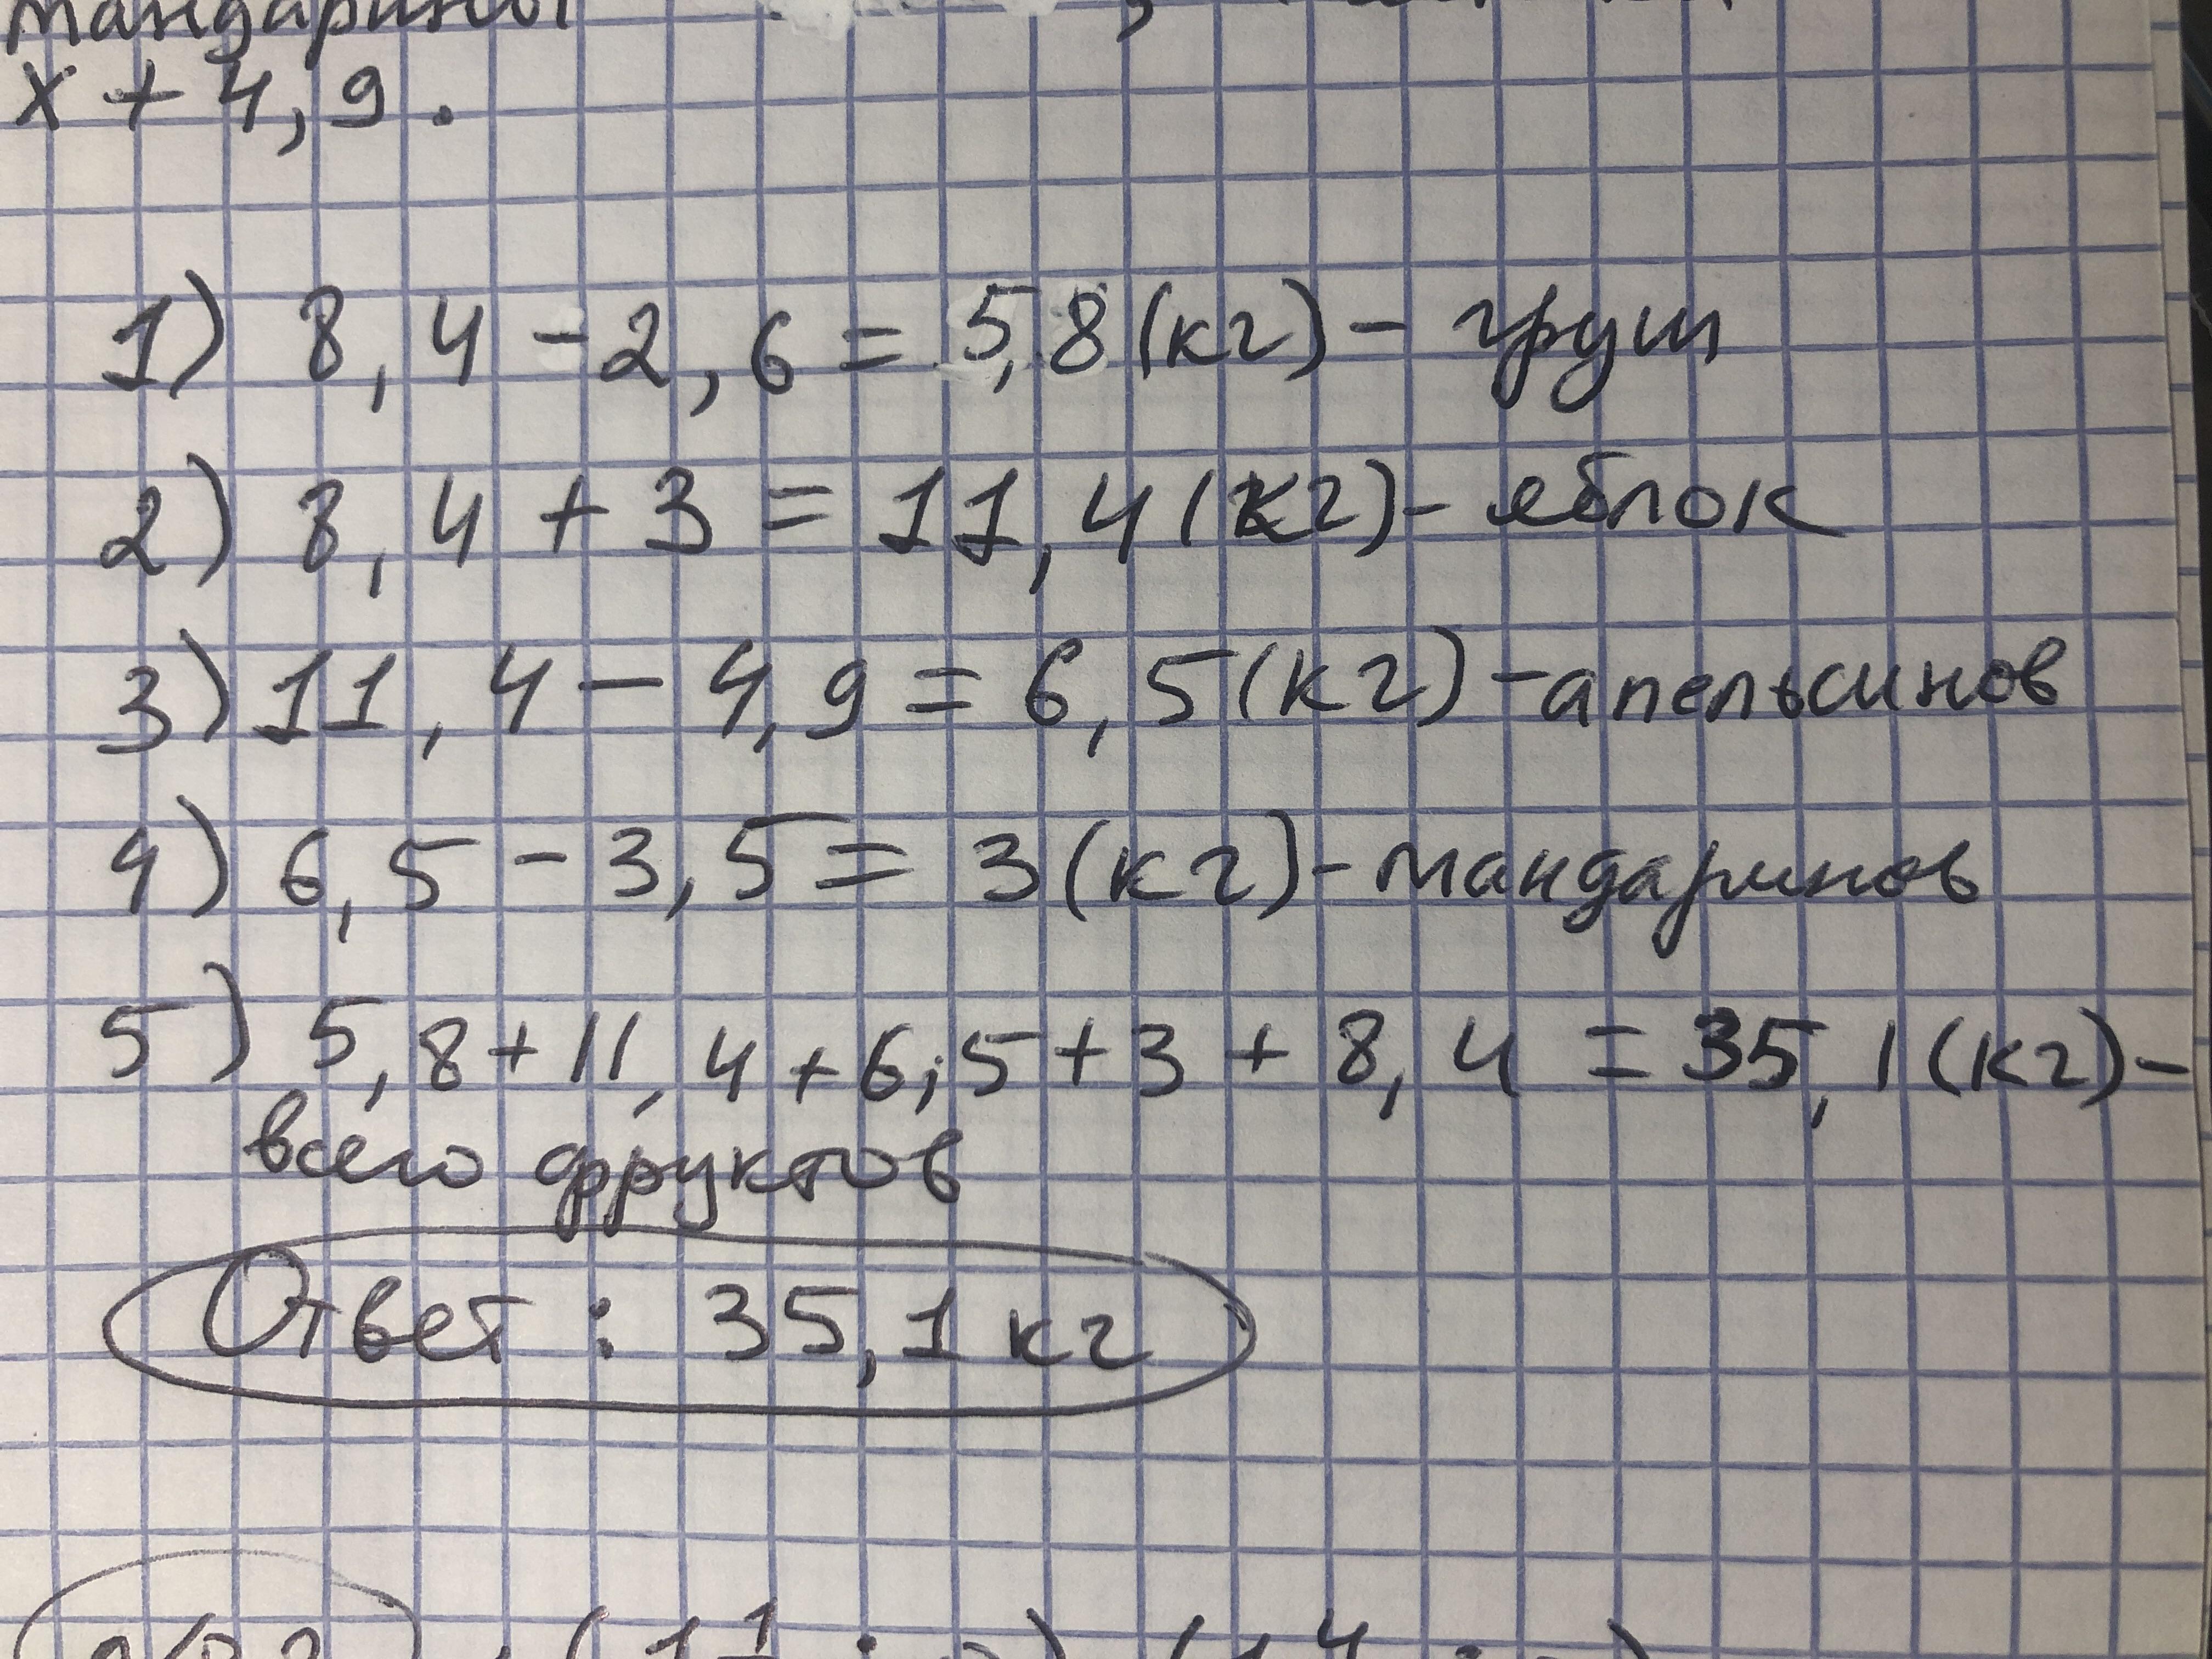 мандарины
x + 4,9.
1) 8,4 - 2,6 = 5,8 (кг) - груш
2) 8,4 + 3 = 11,4 (кг) - яблок
3) 11,4 - 4,9 = 6,5 (кг) - апельсинов
4) 6,5 - 3,5 = 3 (кг) - мандаринов
5) 5,8 + 11,4 + 6,5 + 3 + 8,4 = 35,1 (кг) -
всего фруктов
Ответ : 35,1 кг